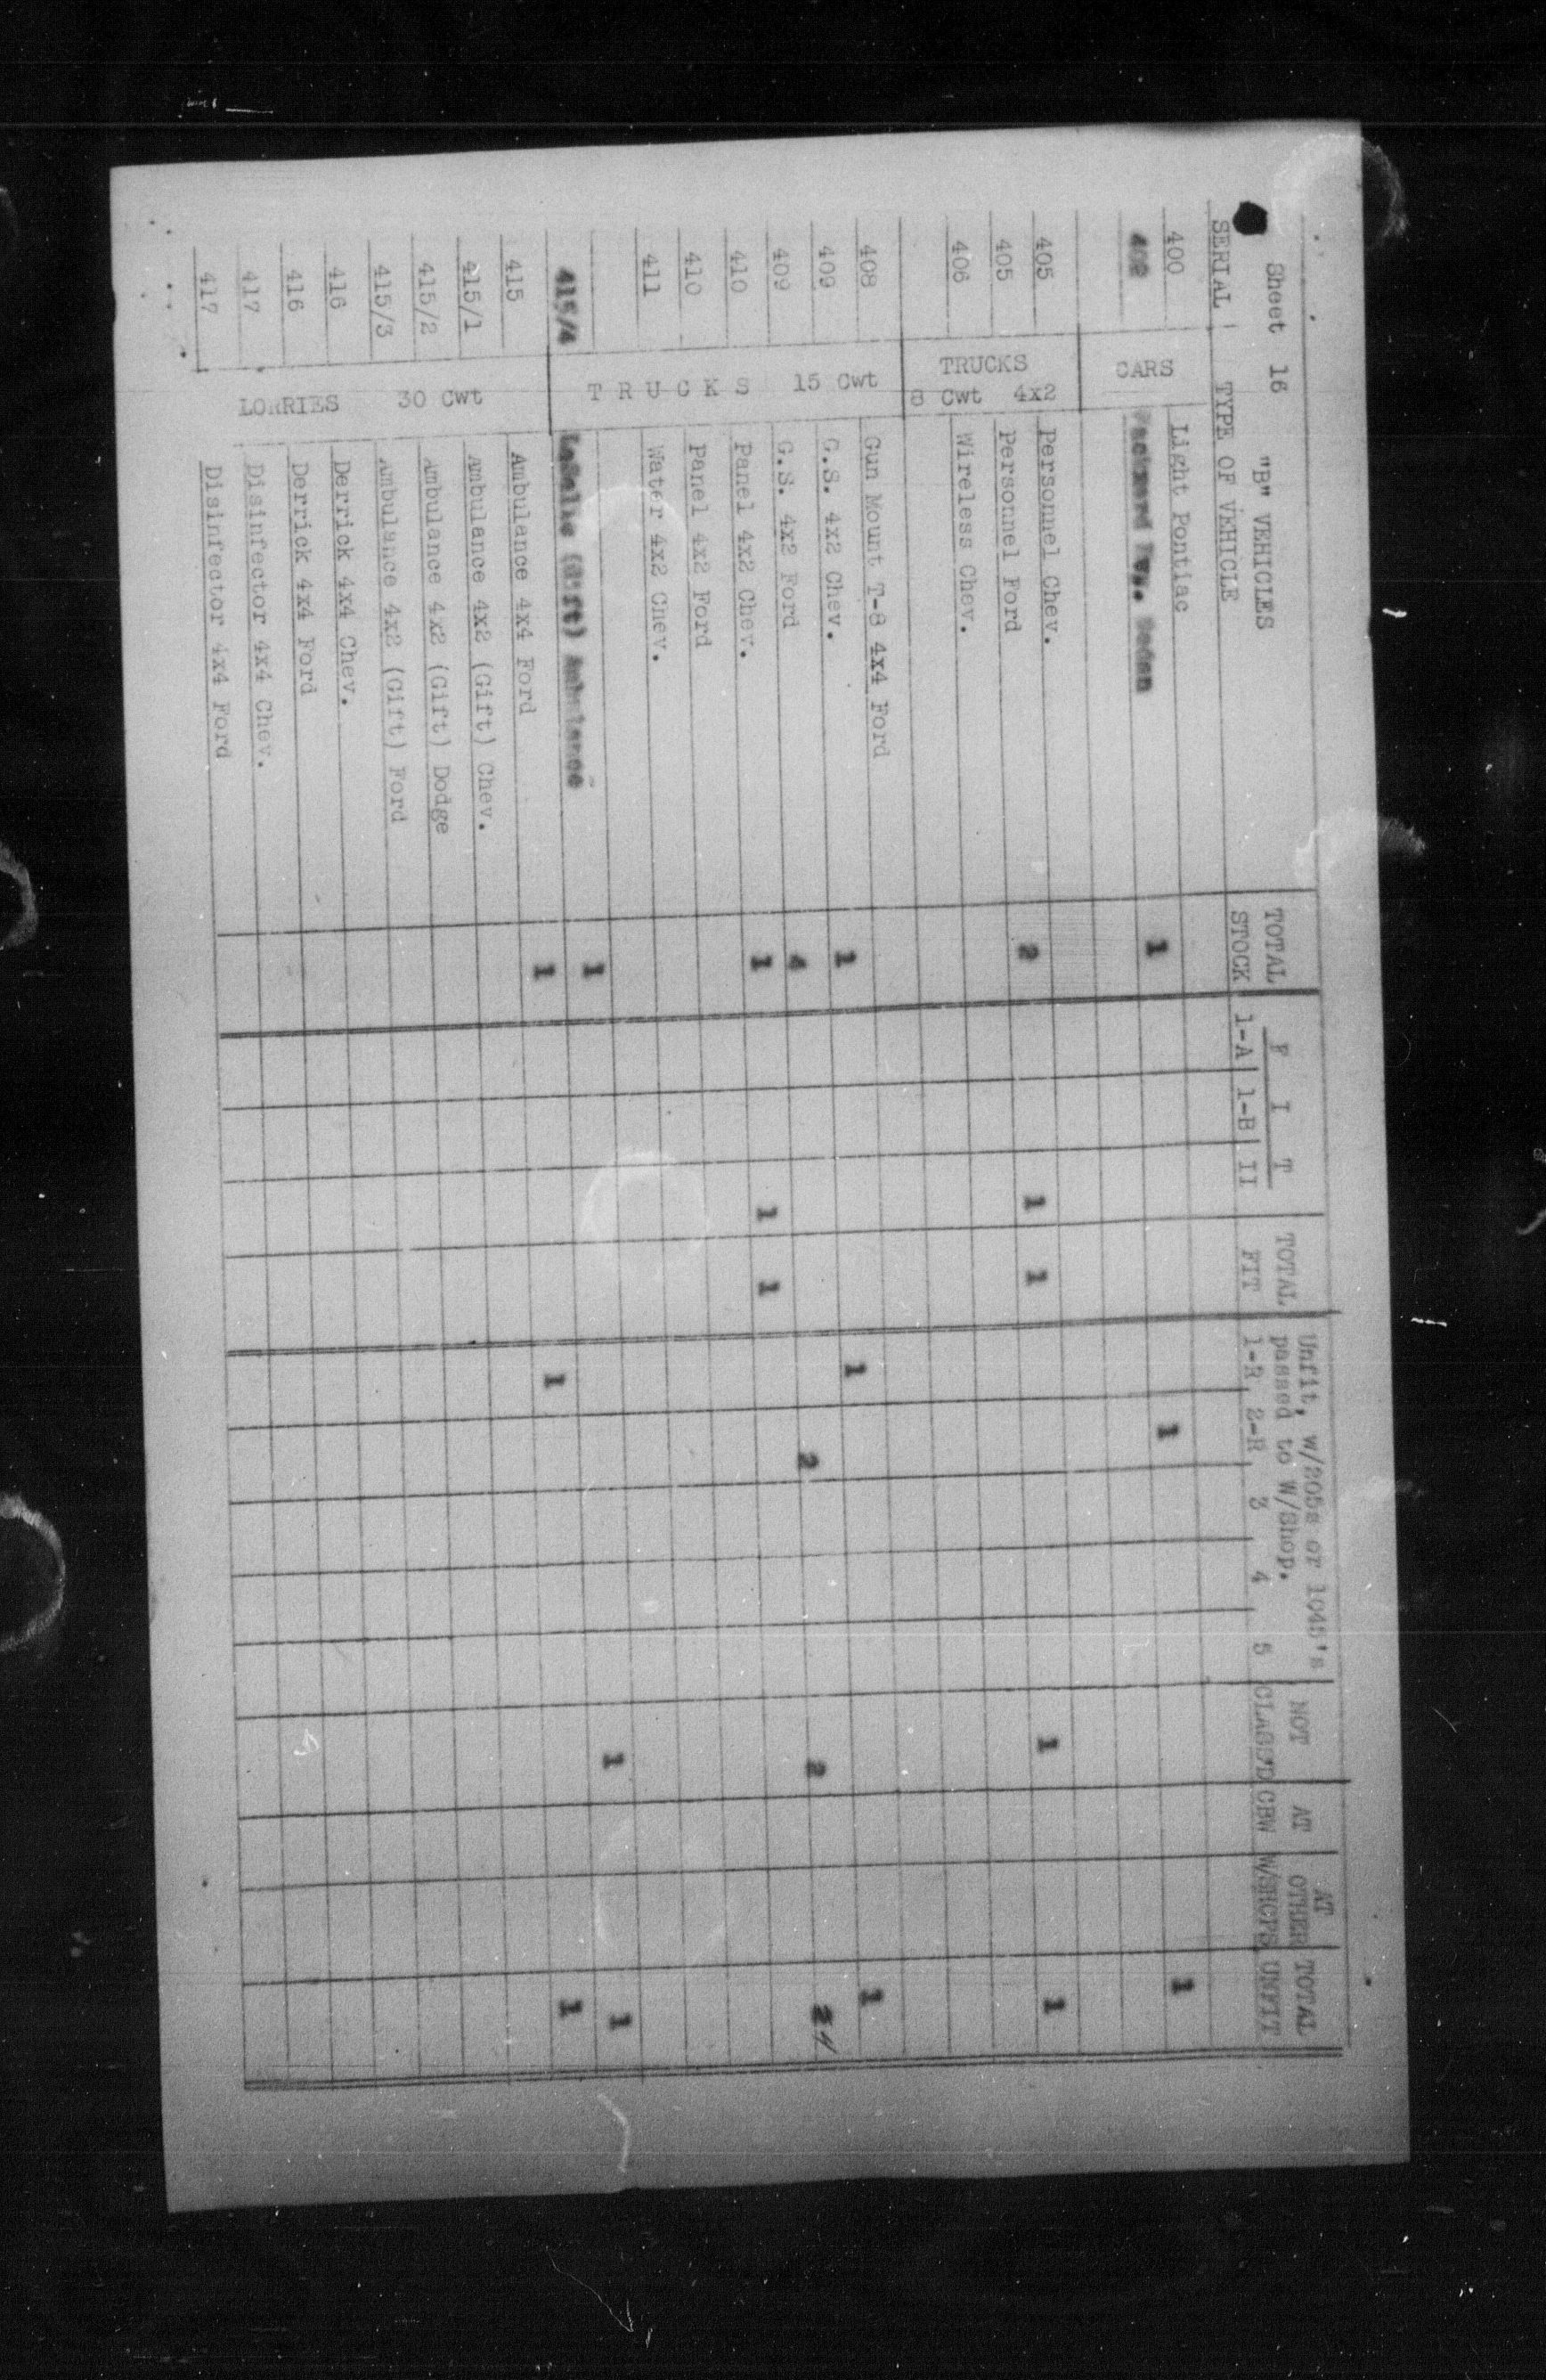 Sheet 16 "B" VEHICLES
SERIAL TYPE OF VEHICLE TOTAL STOCK F I T 1-A 1-B II TOTAL FIT Unfit, w/205s or 1045's passed to W/Shop. 1-R 2-R 3 4 5 NOT CLASS'D AT CBW AT OTHER W/SHOPS TOTAL UNFIT
CARS
400 Light Pontiac
402 Packard Sedan 1 1 1
TRUCKS
8 Cwt 4x2
405 Personnel Chev.
405 Personnel Ford 2 1 1 1 1
406 Wireless Chev.
TRUCKS 15 Cwt
408 Gun Mount T-8 4x4 Ford
409 G.S. 4x2 Chev. 1 1 1
409 G.S. 4x2 Ford 4 2 2 2 4
410 Panel 4x2 Chev. 1 1 1
410 Panel 4x2 Ford
411 Water 4x2 Chev.
415/4 LaSalle (Gift) Ambulance 1 1 1
LORRIES 30 Cwt
415 Ambulance 4x4 Ford 1 1 1
415/1 Ambulance 4x2 (Gift) Chev.
415/2 Ambulance 4x2 (Gift) Dodge
415/3 Ambulance 4x2 (Gift) Ford
416 Derrick 4x4 Chev.
416 Derrick 4x4 Ford
417 Disinfector 4x4 Chev.
417 Disinfector 4x4 Ford